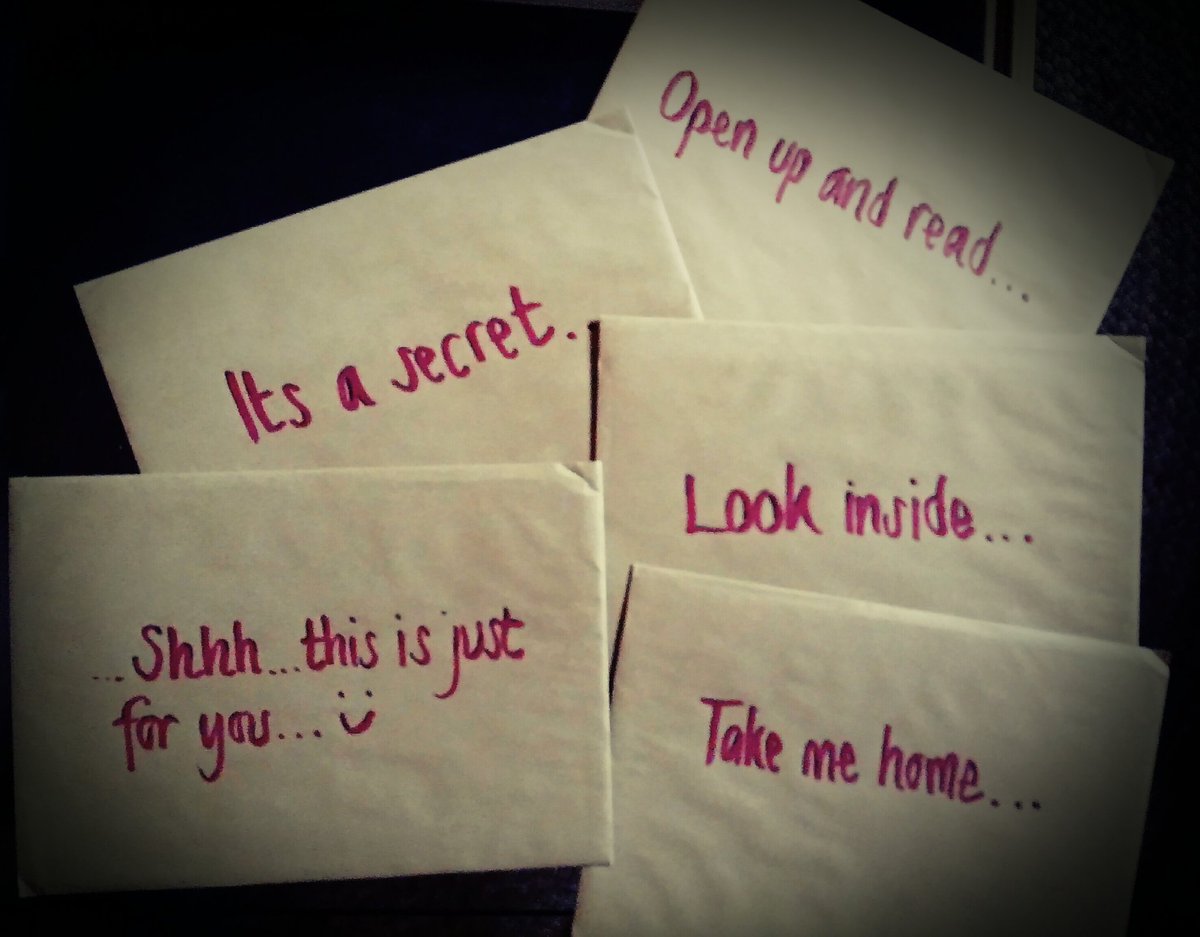 Open up and read...
Its a secret..
Look inside...
...Shhh...this is just
for you... :)
Take me home...